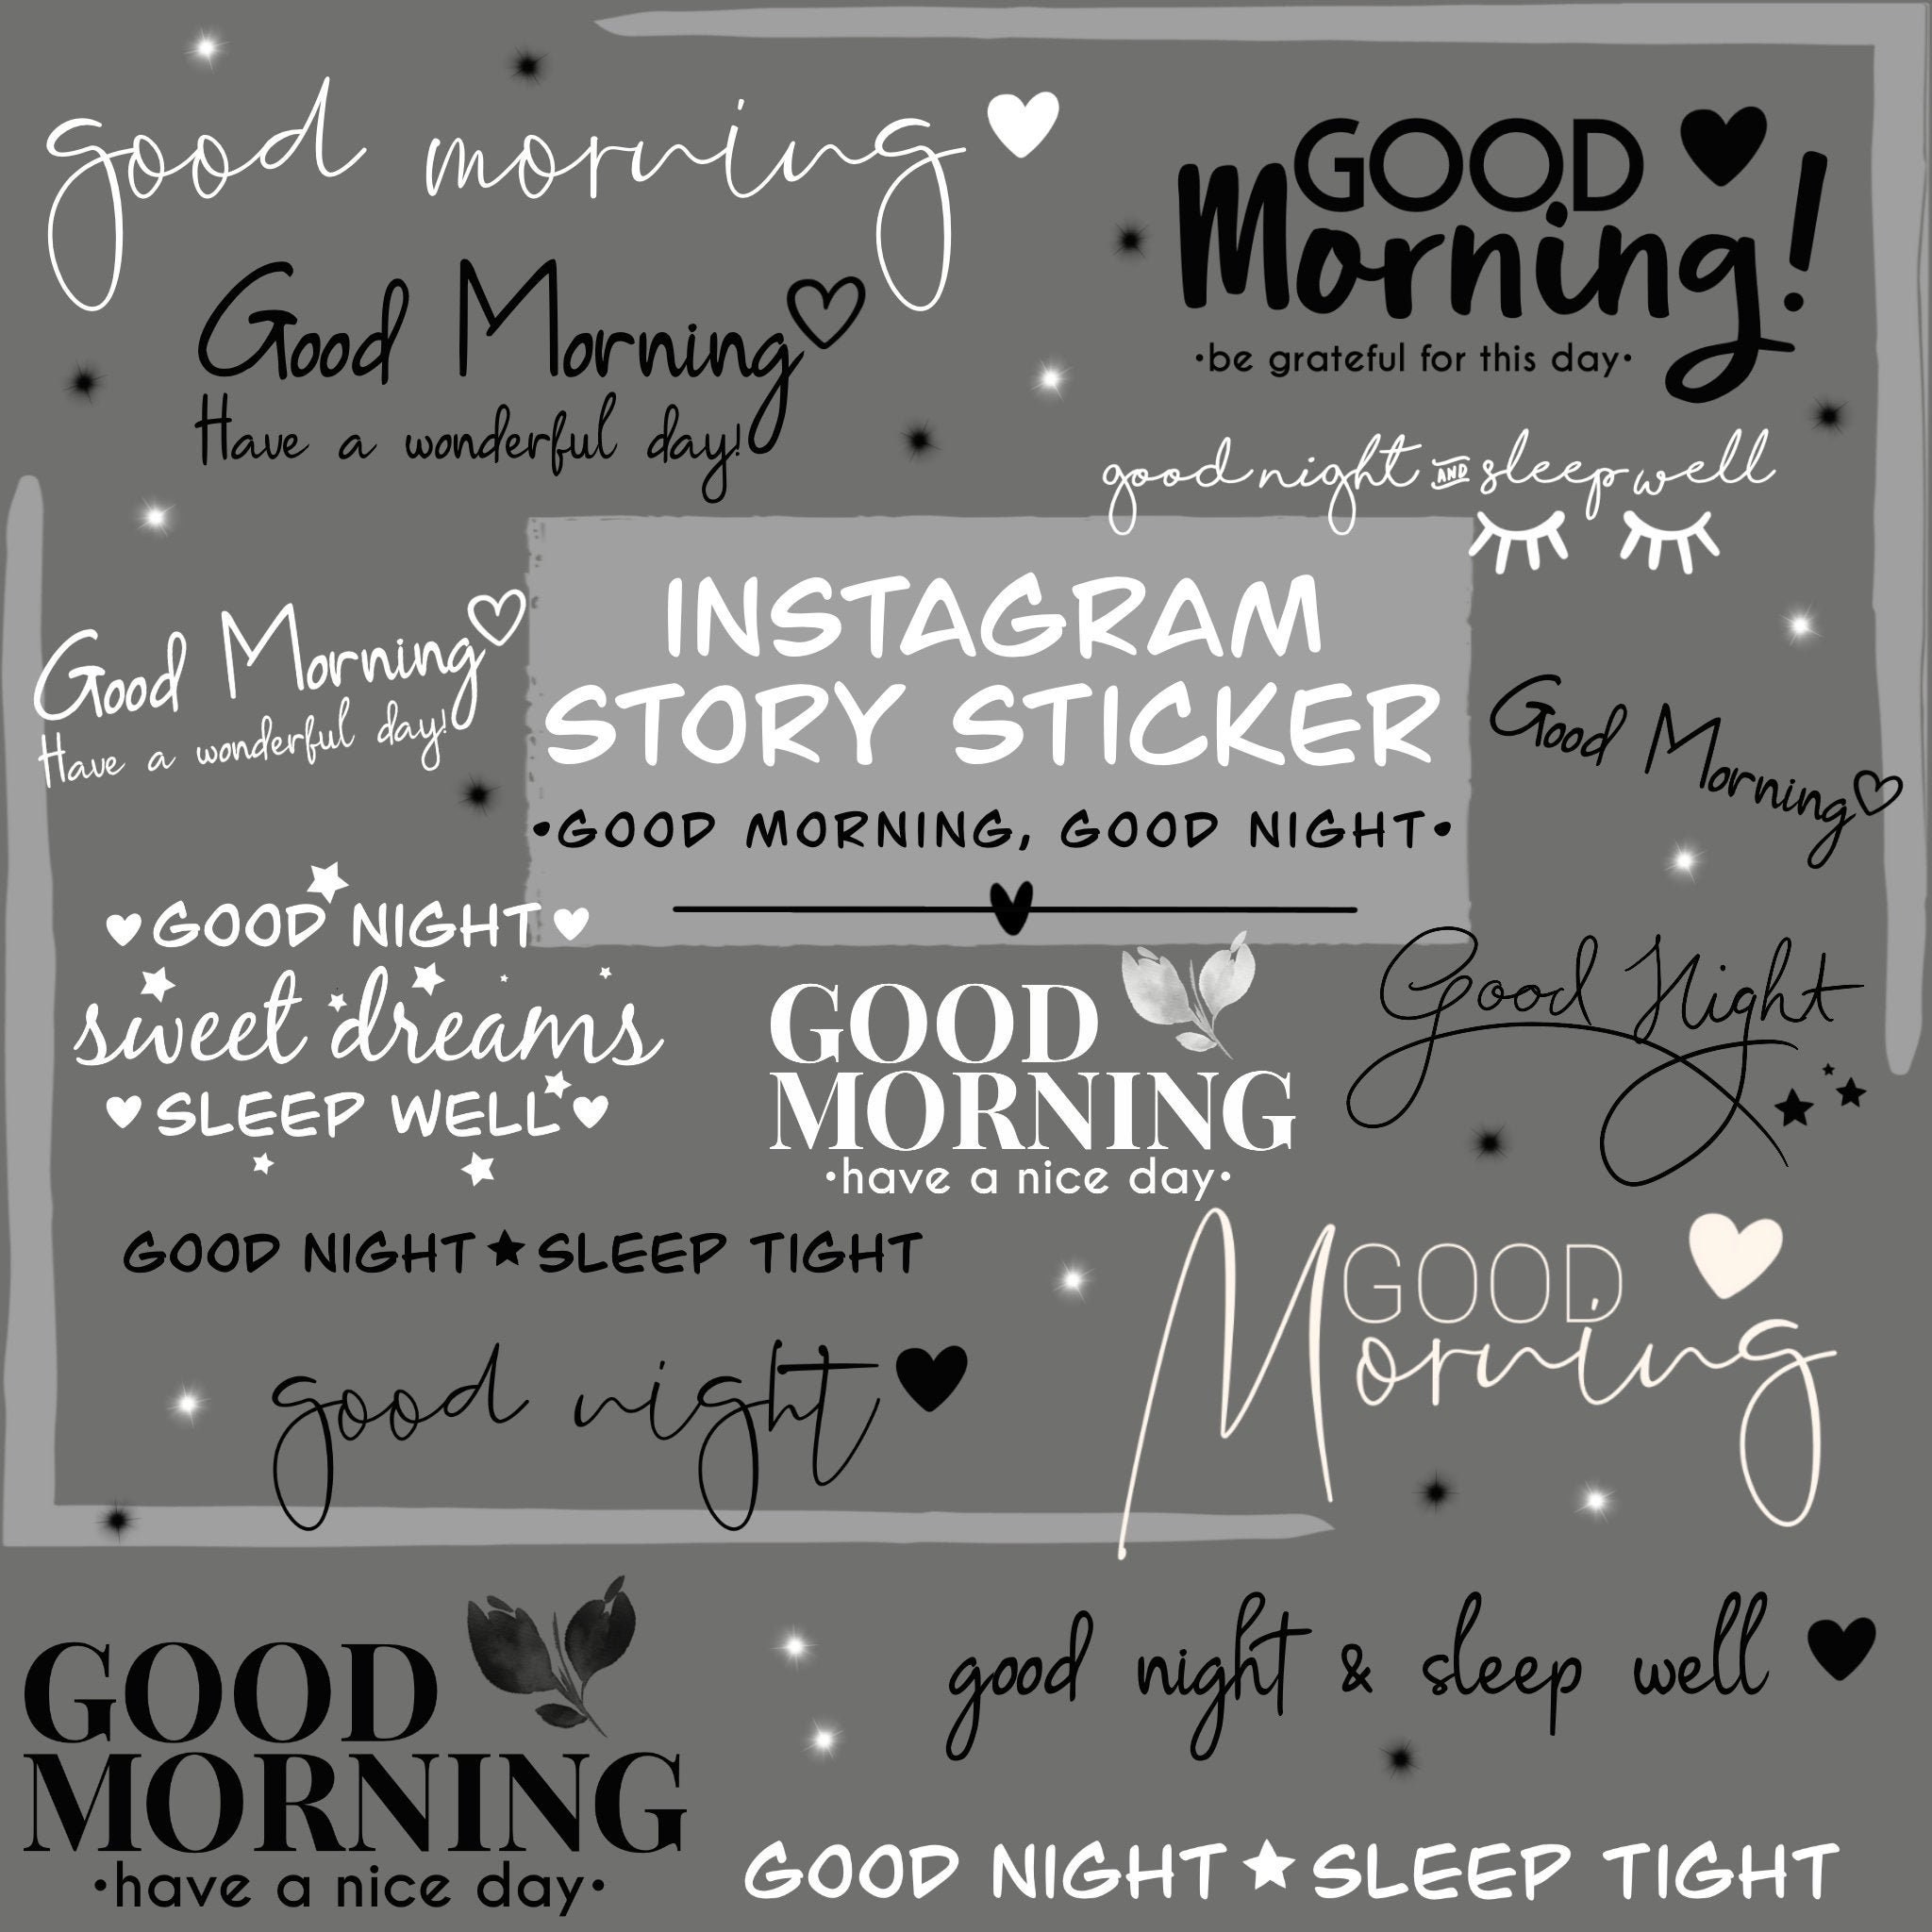 good morning
GOOD
Morning!
•be grateful for this day•
Good Morning
Have a wonderful day!
good night AND sleep well
INSTAGRAM
STORY STICKER
•GOOD MORNING, GOOD NIGHT•
Good Morning
Have a wonderful day!
Good Morning
GOOD NIGHT
sweet dreams
SLEEP WELL
GOOD
MORNING
•have a nice day•
Good Night
GOOD NIGHT★SLEEP TIGHT
GOOD
Morning
good night
GOOD
MORNING
•have a nice day•
good night & sleep well
GOOD NIGHT★SLEEP TIGHT